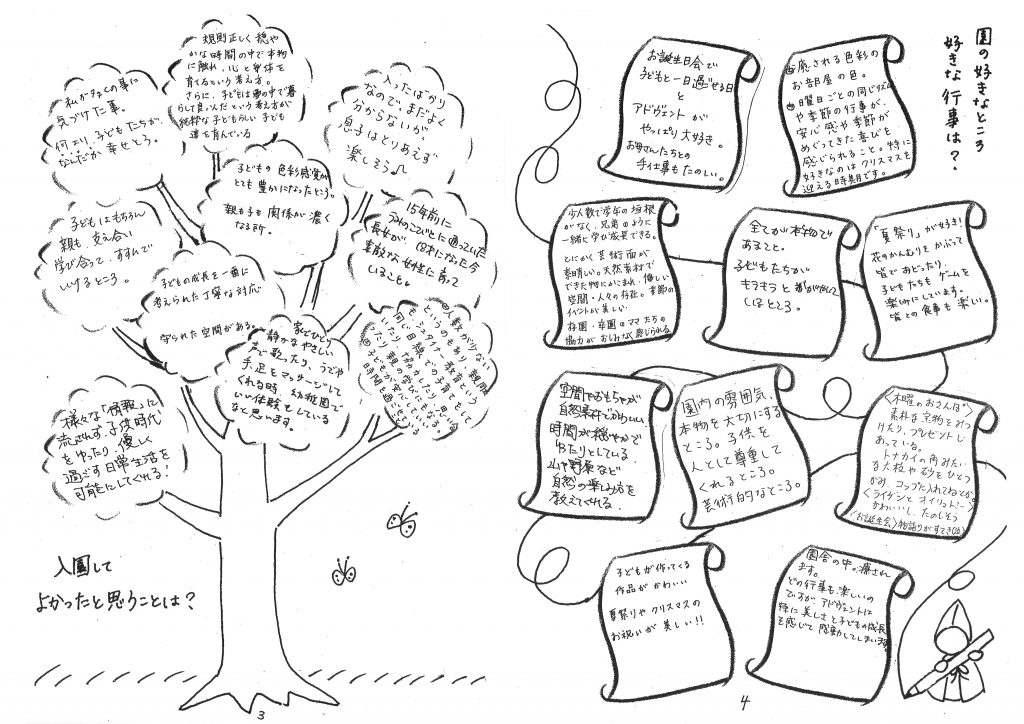 規則正しく穏や
かな時間の中で本物
に触れ、心と身体を
育てるという考え方。
さらに、子どもは夢の中で暮
らして良いんだという考え方が
純粋な子どもらしい子ども
達を育んでいる
私が多くの事に
気づけた事。
何より、子どもたちが、
なんだか幸せそう。
入ったばかり
なので、まだよく
分からないが、
息子はとりあえず
楽しそう♪
子どもの色彩感覚が
とても豊かになったところ。
親も子も関係が濃く
なる所。
子どもはもちろん
親も、支え合い
学び合って、すすんで
いけるところ。
15年前に
長女が
素敵な女性に育って
いること。
子どもの成長を一番に
考えられた丁寧な対応
守られた空間がある。
家でひとり
静かなやさしい
声で歌ったり、うでや
手足をマッサージして
くれる時 幼稚園で
いい体験をしている
なと思います。
人数が少ない
様々な「情報」に
流されず、子供時代
をゆったり、優しく
過ごす日常生活を
可能にしてくれる!
入園して
よかったと思うことは?
3
園の好きなところ
好きな行事は?
お誕生日会で
子どもと一日過せる日
と
アドヴェントが
やっぱり大好き。
お母さんたちとの
手仕事もたのしい。
癒される色彩の
お部屋の色。
曜日ごとの同じリズム
や季節の行事が、
安心感や季節が
めぐってきた喜びを
感じられること。特に
好きなのはクリスマスを
迎える時期です。
少人数で学年の垣根
がなく、兄弟のように
一緒に学び成長できる。
とにかく芸術面が
素晴しい。天然素材で
できた物にかこまれ、優しい
空間・人々の存在。季節の
イベントが美しい
在園・卒園のママたちの
協力がおしみなく感じられる
全てが本物で
あること。
子どもたちが
キラキラと
いるところ。
「夏祭り」が好き!
花のかんむりをかぶって
皆でおどったり、
子どもたちも ゲームを
楽しみにしています。
皆との食事も楽しい。
空間やおもちゃが
自然素材でかわいい
時間が穏やかで
ゆたりとしている
山や野原など
自然の楽しみ方を
教えてくれる
園内の雰囲気、
本物を大切にする
ところ。子供を
人として尊重して
くれるところ。
芸術的なところ。
<木曜のおさんぽ>
素朴な宝物をみつ
けたり、プレゼントし
あっている。
トナカイの角みたい
な大枝や石をひとつ
かみ、コップに入れてねてとか。
<ライゲンとオイリュトミー>
かわいいし、たのしそう
<お誕生会>物語りがすてき
子どもが作ってくる
作品がかわいい
夏祭りやクリスマスの
お祝いが美しい!!
園舎の中。癒され
ます。
どの行事も楽しいの
ですが、アドヴェントは
特に美しさと子どもの成長
を感じて感動してしまいます。
4